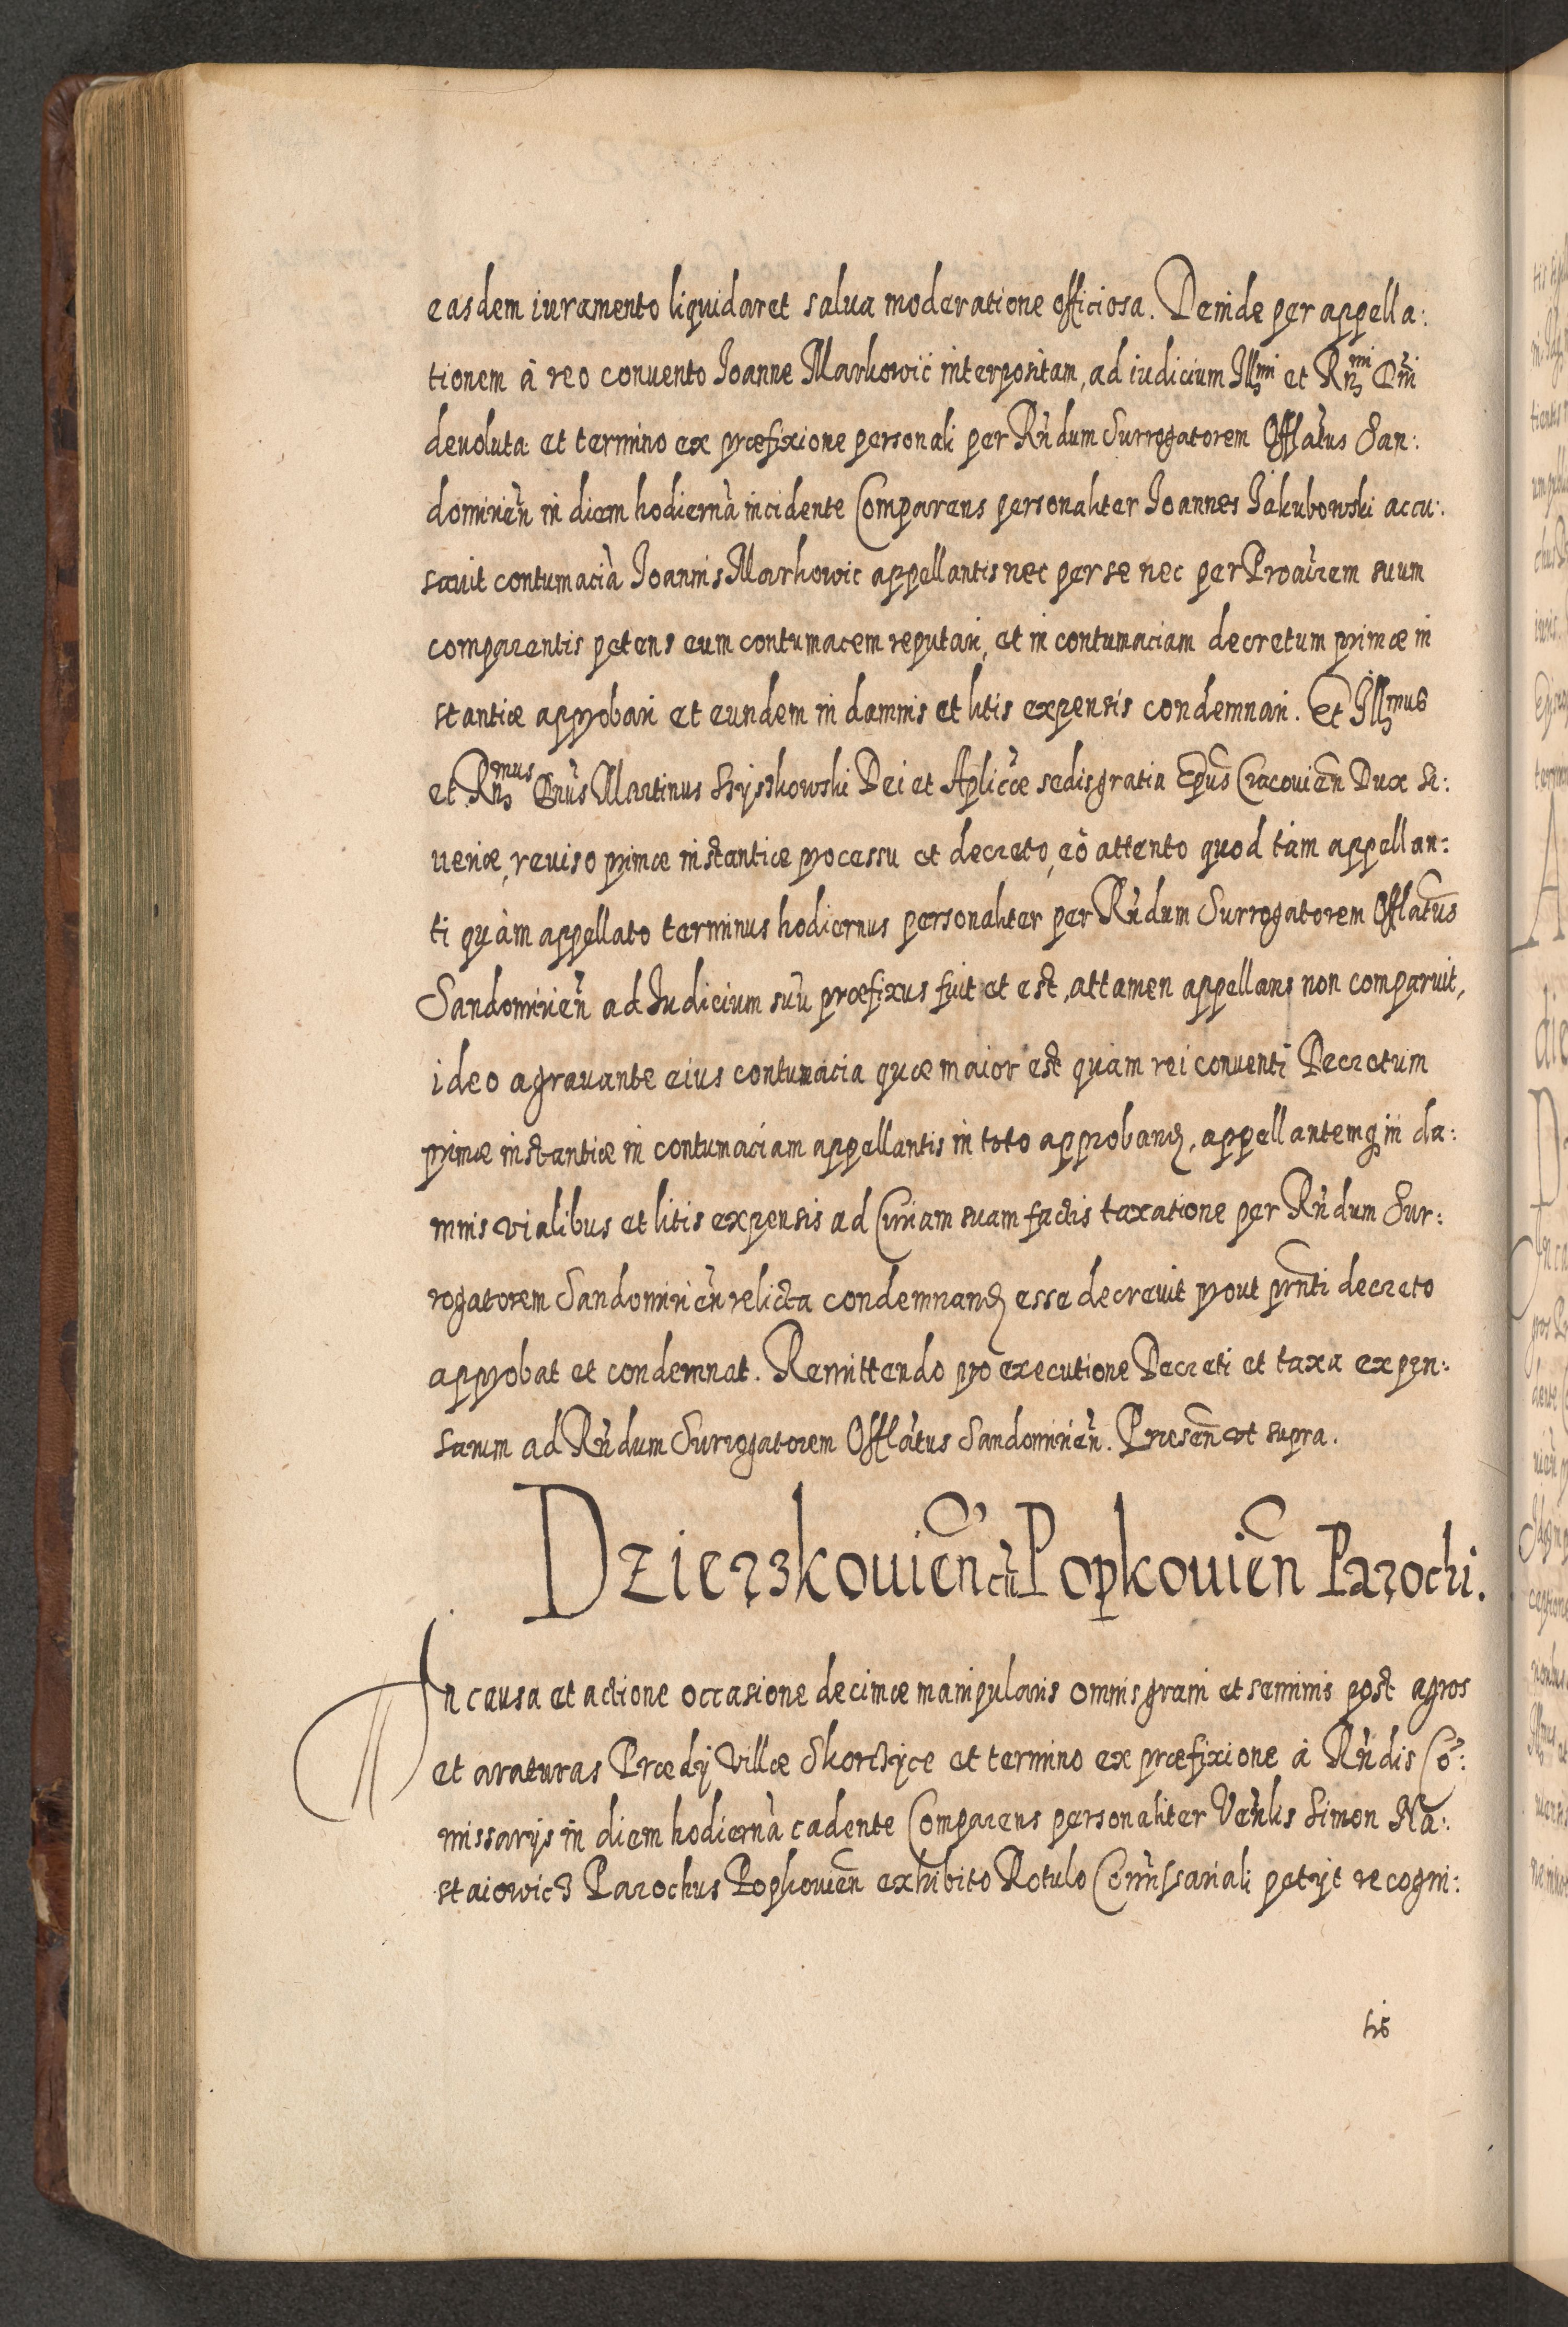 easdem iuramento liquidaret salua moderatione officiosa. Deinde per appella:
tionem à reo conuento Ioanne Markowic interpositam, ad iudicium Illmi et Rndmi Dni
deuoluta et termino ex præfixione personali per Rn̄dum Surrogatorem Offlātus San:
domirien̄ in diem hodiernā incidente Comparens personaliter Ioannes Iakubowski accu:
sauit contumaciā Ioannis Markowic appellantis nec per se nec per Proāurem suum
comparentis petens eum contumacem reputari, et in contumaciam decretum primæ in
stantiæ approbari et eundem in damnis et litis expensis condemnari. Et Illmus
et Rndmus Dnūs Martinus Szyszkowski Dei et Aplicæ sedis gratia Epus̄ Cracouien̄ Dux Se:
ueriæ, reuiso primæ instantiæ processu et decreto, eò attento quod tàm appellan:
ti quàm appellato terminus hodiernus personaliter per Rn̄dum Surrogatorem Offlatus̄
Sandomirien̄ ad Iudicium suū præfixus fuit et est, attamen appellans non comparuit,
ideo agrauante eius contumacia quæ maior est quàm rei conuenti Decretum
primæ instantiæ in contumaciam appellantis in toto approbandū, appellantemq̨ in da:
mnis vialibus et litis expensis ad Curiam suam factis taxatione per Rn̄dum Sur:
rogatorem Sandomirien̄ relicta condemnandū esse decreuit prout prn̄ti decreto
approbat et condemnat. Remittendo pro executione Decreti et taxa expen:
sarum ad Rn̄dum Surrogatorem Offlātus Sandomirien̄. Præsen̄ vt supra.
Dzierzkouien̄ cū Popkouien̄ Parochi.
In causa et actione occasione decimæ manipularis omnis grani et seminis post agros
et araturas Prædij Villæ Skorczyce et termino ex præfixione à Rn̄dis Cō:
missarijs in diem hodiernā cadente Comparens personaliter Ven̄lis Simon Na:
staiowicz Parochus Popkouien̄ exhibito Rotulo Com̄issariali petijt recogni:
tis